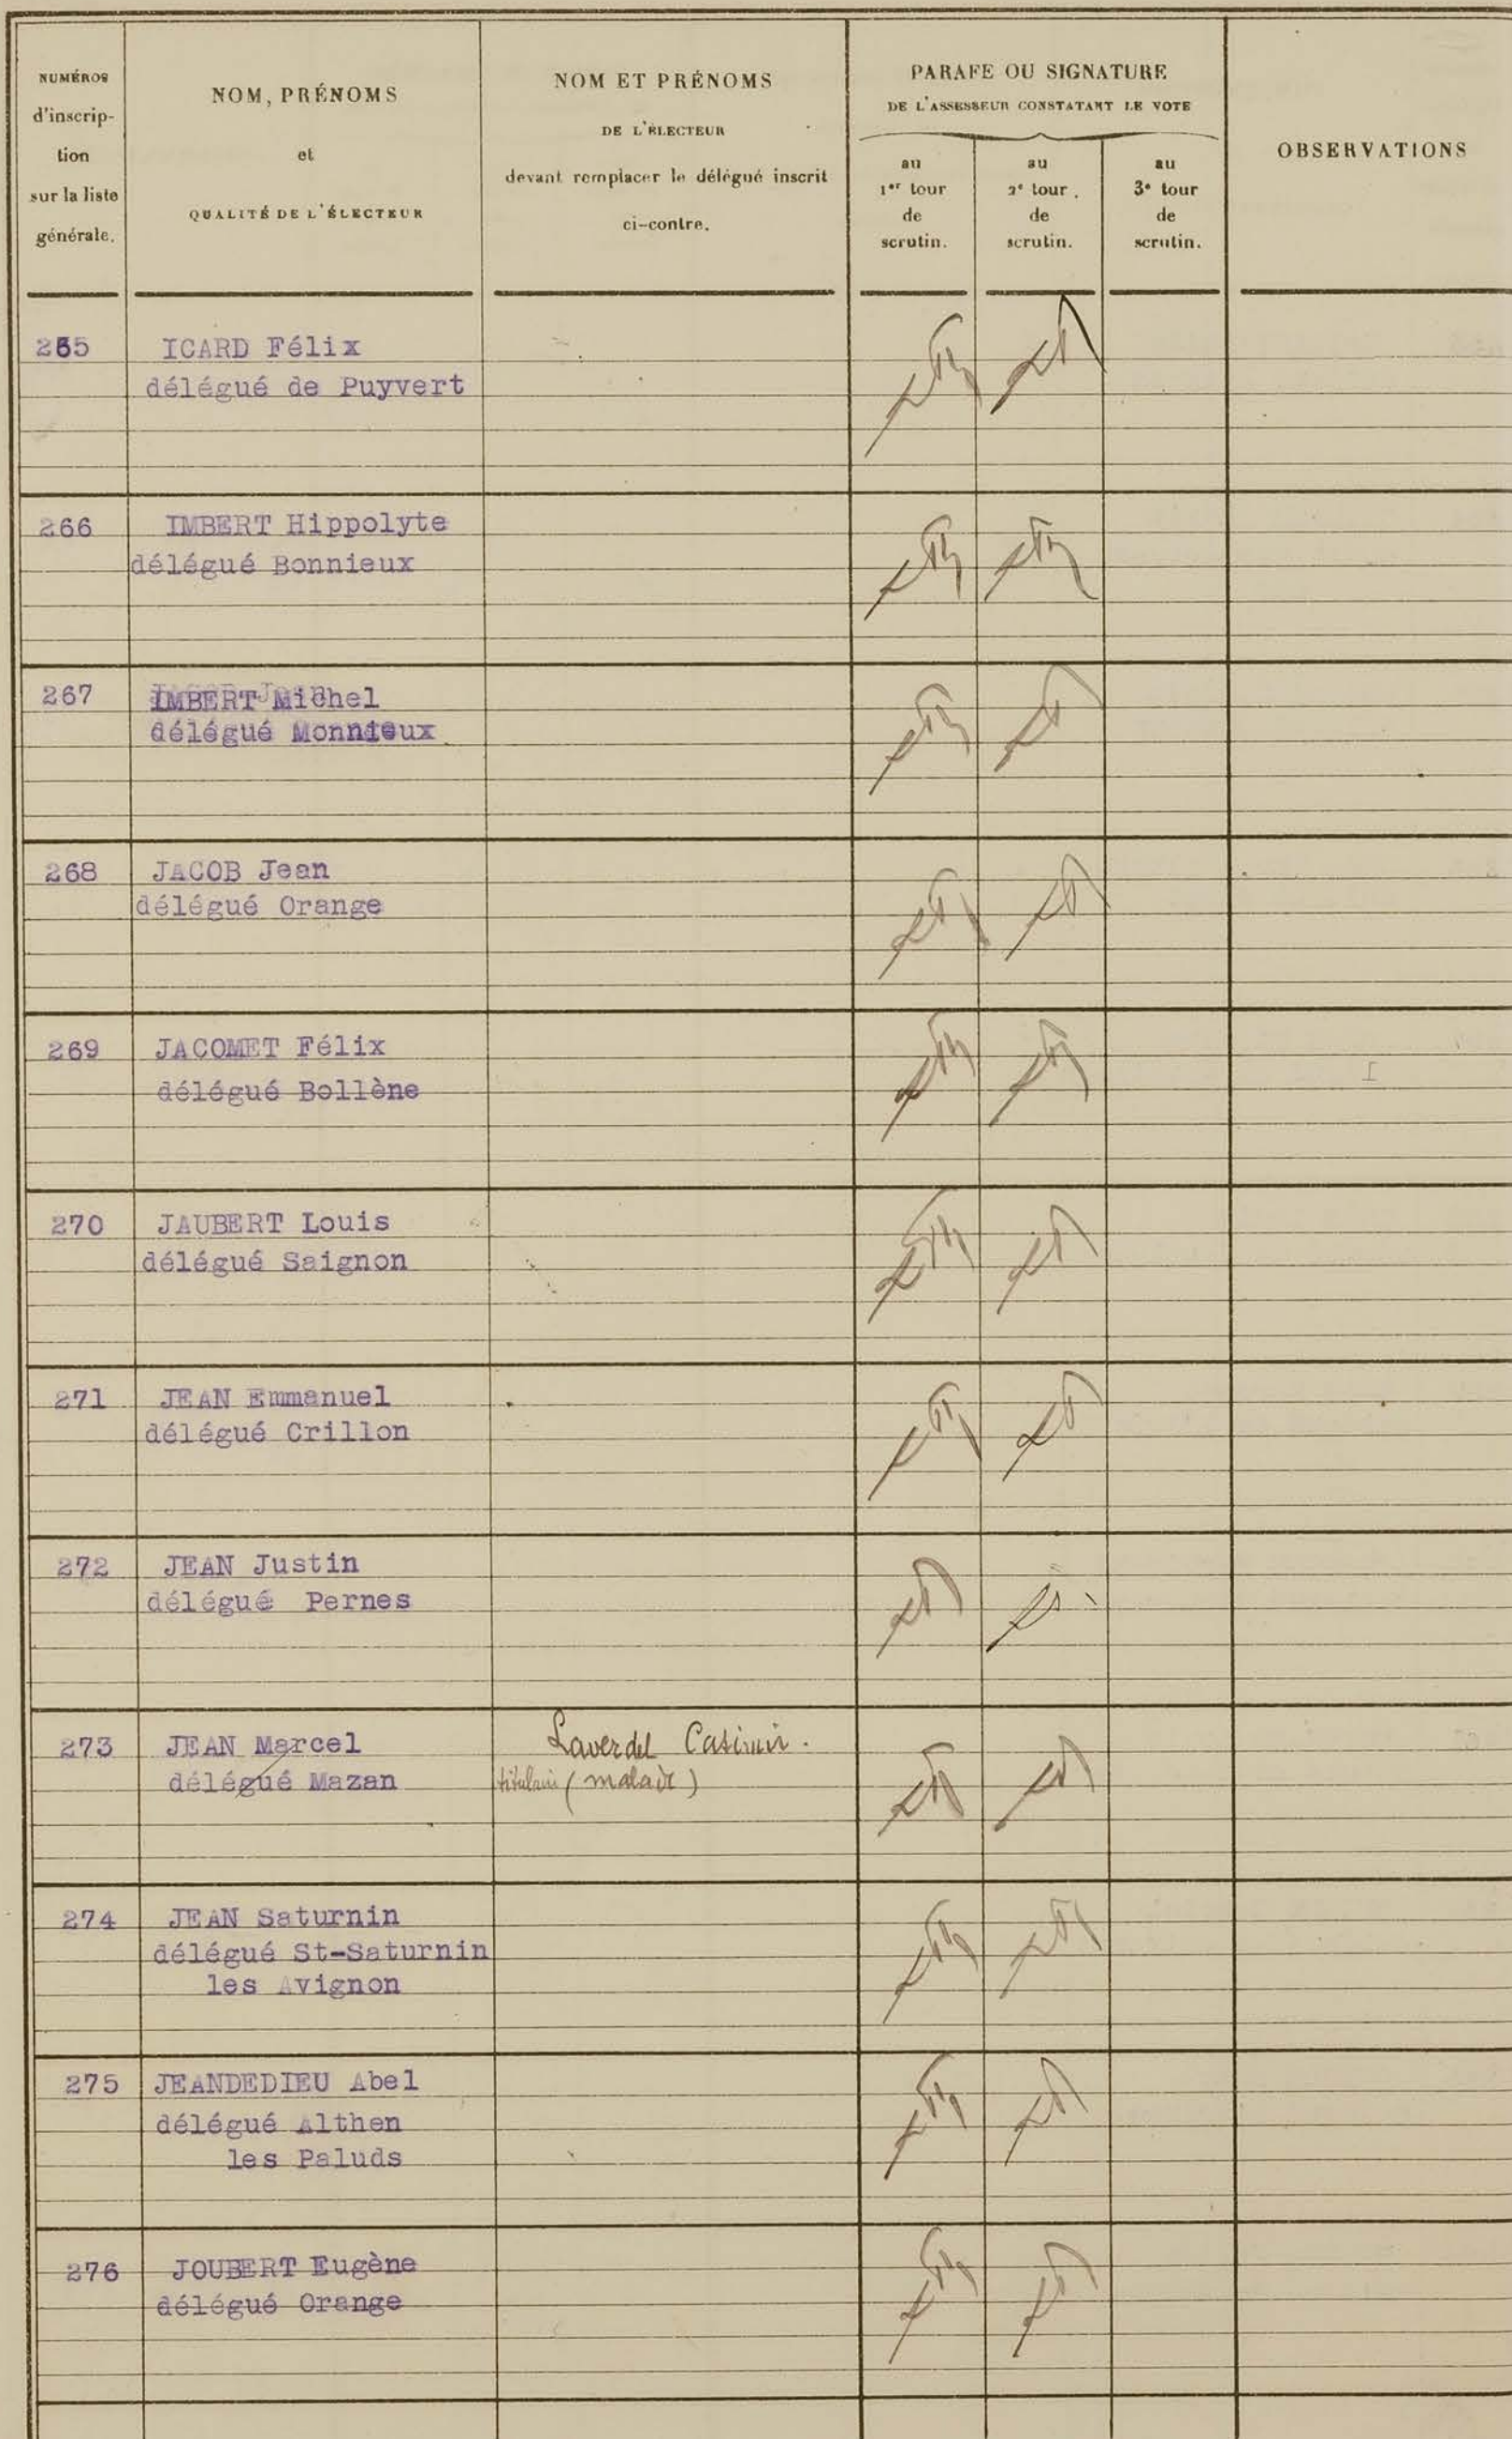 NUMÉROS
d'inscrip-
tion
sur la liste
générale.
NOM, PRÉNOMS
et
QUALITÉ DE L'ÉLECTEUR
NOM ET PRÉNOMS
DE L'ÉLECTEUR
devant remplacer le délégué inscrit
ci-contre.
PARAFE OU SIGNATURE
DE L'ASSESSEUR CONSTATANT LE VOTE
au
1er tour
de
scrutin.
au
2e tour.
de
scrutin.
au
3e tour
de
scrutin.
OBSERVATIONS
265
ICARD Félix
délégué de Puyvert
266
IMBERT Hippolyte
délégué Bonnieux
267
IMBERT Michel
délégué Monnieux
268
JACOB Jean
délégué Orange
269
JACOMET Félix
délégué Bollène
270
JAUBERT Louis
délégué Saignon
271
JEAN Emmanuel
délégué Crillon
272
JEAN Justin
délégué Pernes
273
JEAN Marcel
délégué Mazan
Laverdel Casimir.
titulaire (malade)
274
JEAN Saturnin
délégué St-Saturnin
les Avignon
275
JEANDEDIEU Abel
délégué Althen
les Paluds
276
JOUBERT Eugène
délégué Orange